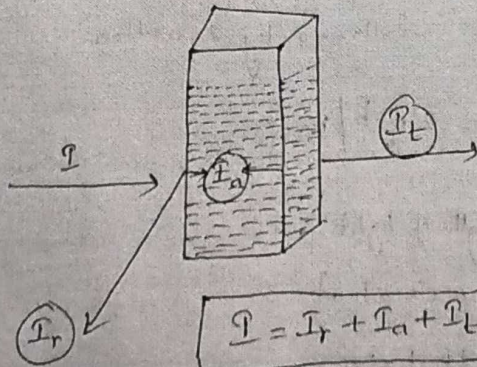 I
I_a
I_t
I_r
I = I_r + I_a + I_t